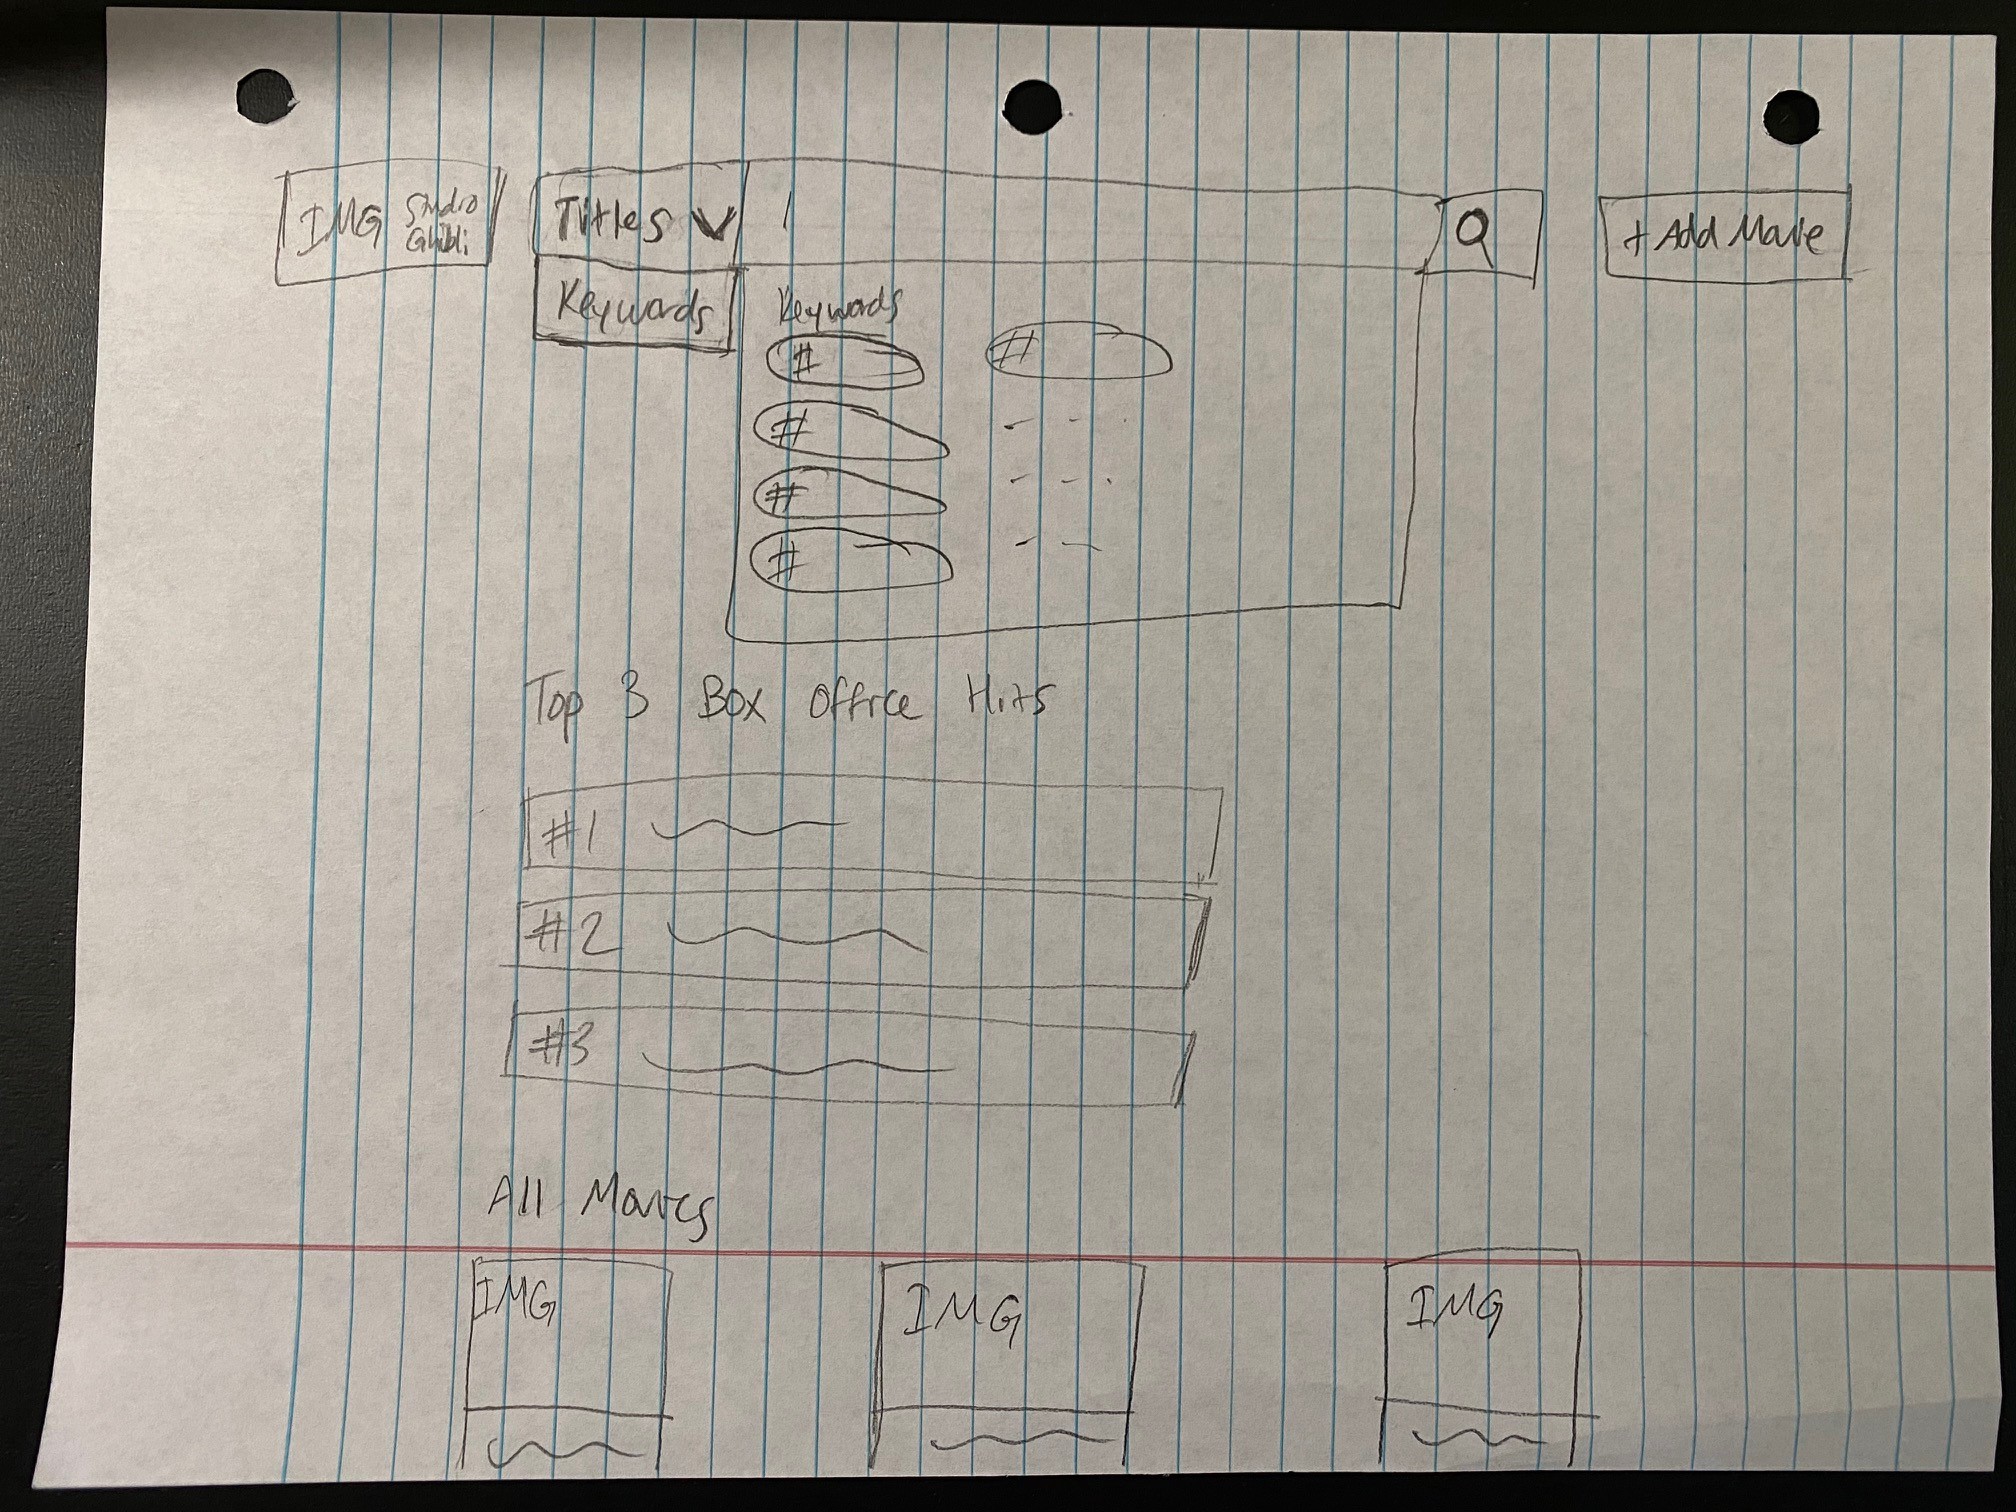 IMG Studio Ghibli
Titles
+ Add Movie
Keywords
Keywords
#
#
#
#
#
Top 3 Box Office Hits
#1
#2
#3
All Movies
IMG
IMG
IMG